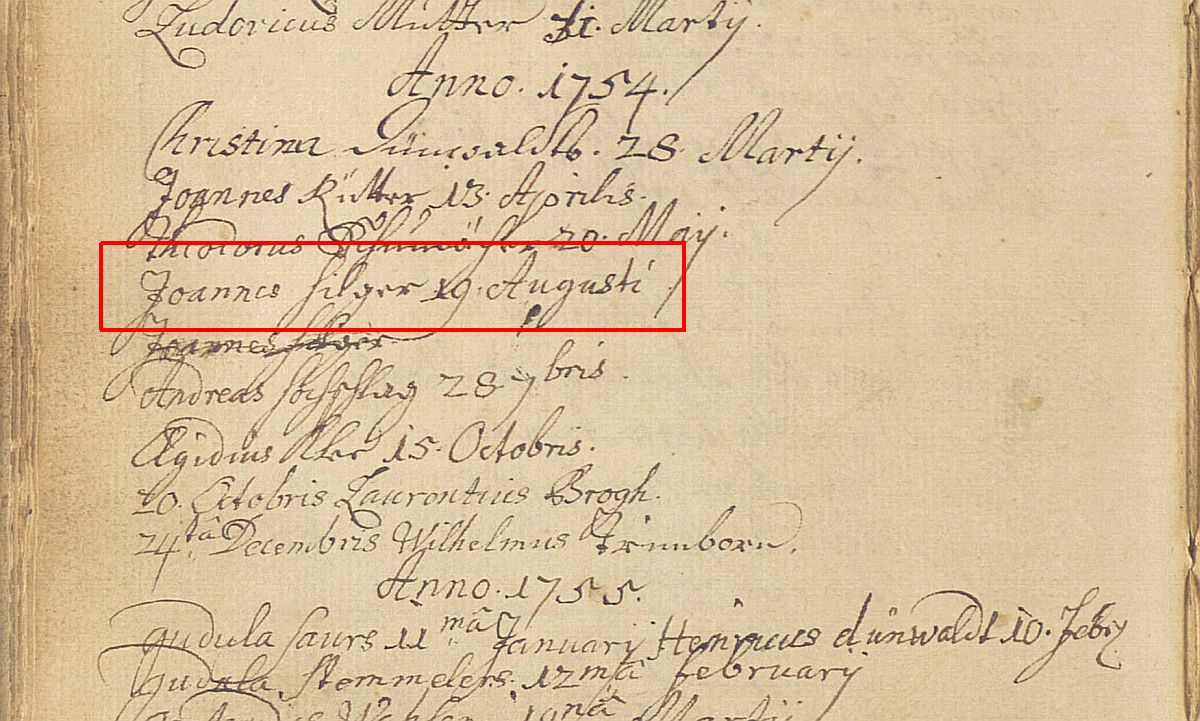 Ludovicus Mütter 31. Martij.
Anno. 1754.
Christina Dünwaldts. 28. Martij.
Joannes Rütter 13. Aprilis.
Theodorus 20. Maij.
Joannes hilger 19. Augusti
Joannes hilger
Andreas 28 7bris.
Ægidius Klee 15. Octobris.
20. Octobris Laurentius Brogh.
24tâ Decembris Wilhelmus Trimborn.
Anno. 1755.
gudula saurs 11mâ January Henricus dünwaldt 10. Febry
gudula Stemmelers. 12mâ february
19nâ Martij